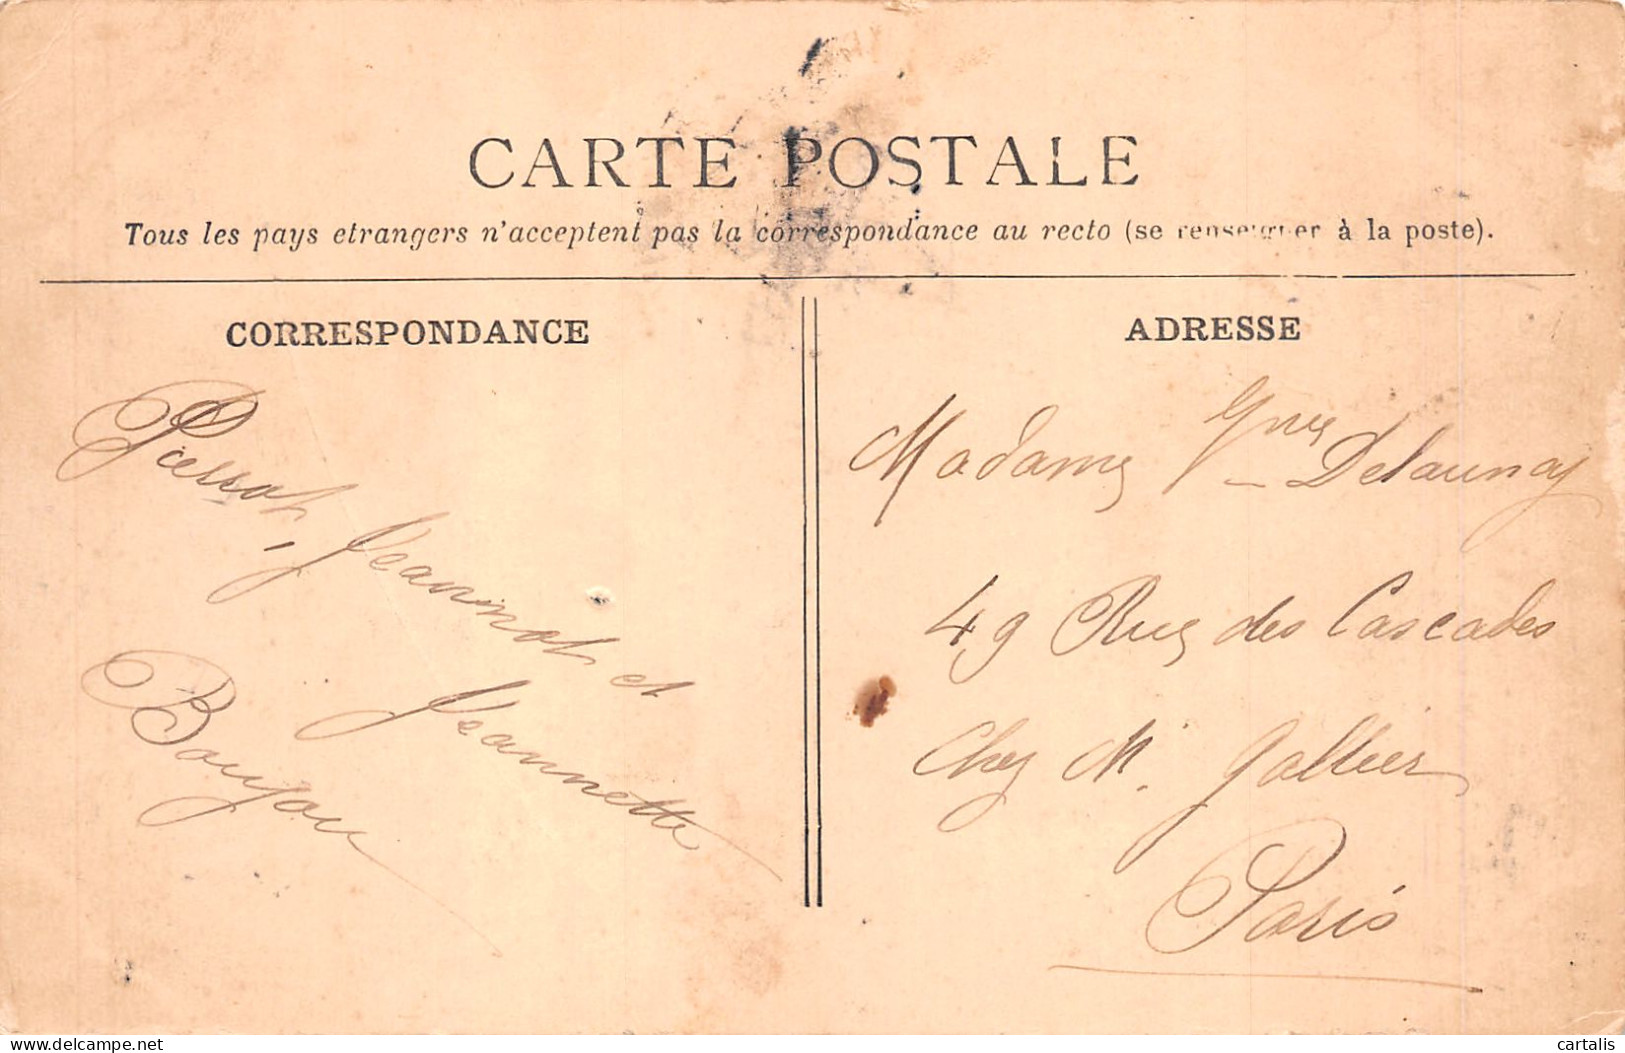 CARTE POSTALE
Tous les pays etrangers n'acceptent pas la correspondance au recto (se renseigner à la poste).
CORRESPONDANCE
Pierrot, Jeannot et
Jeannette
Boujou
ADRESSE
Madame Delaunay
49 Rue des Cascades
Chez Mr Gallier
Paris
delcampe.net
cartalis